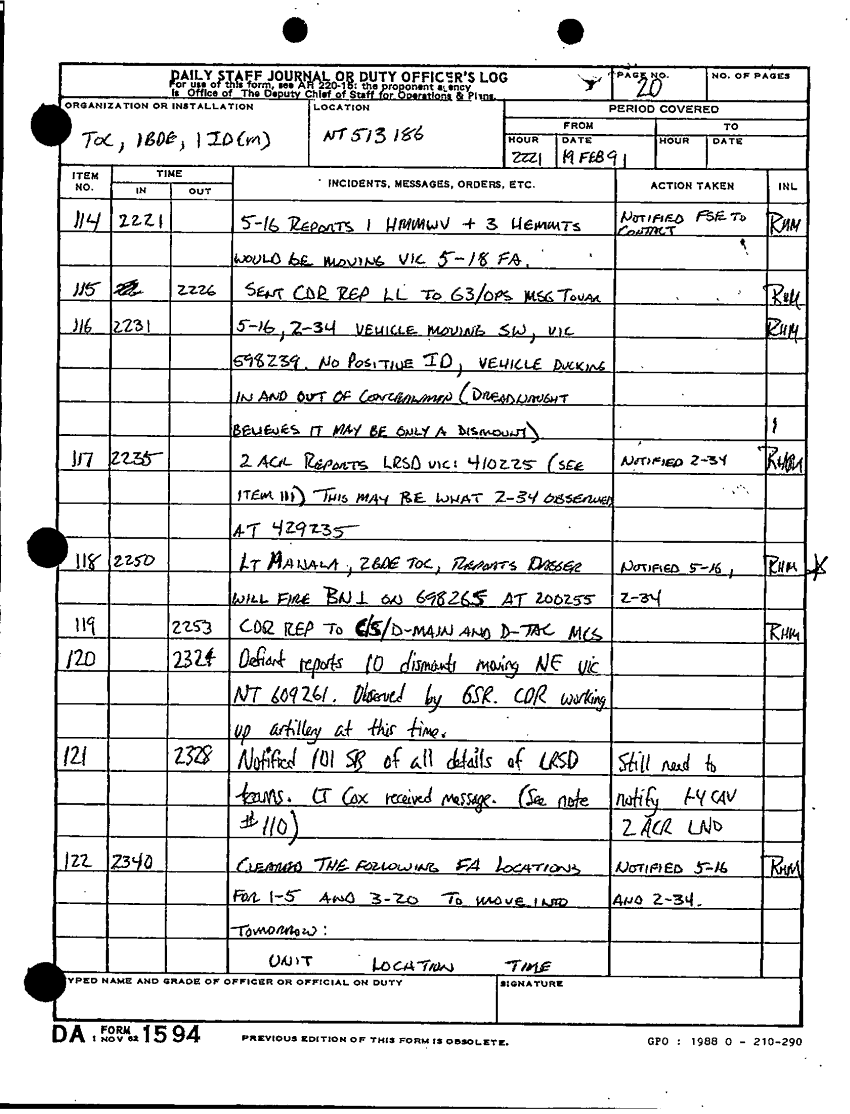 DAILY STAFF JOURNAL OR DUTY OFFICER'S LOG
For use of this form, see AR 220-15; the proponent agency
is Office of The Deputy Chief of Staff for Operations & Plans.
PAGE NO.
20
NO. OF PAGES
ORGANIZATION OR INSTALLATION
TOC, 1BDE, 1ID(M)
LOCATION
NT 513186
PERIOD COVERED
FROM
TO
HOUR
DATE
HOUR
DATE
2221
19 FEB 91
ITEM NO.
TIME
IN
OUT
INCIDENTS, MESSAGES, ORDERS, ETC.
ACTION TAKEN
INL
114 2221 5-16 REPORTS 1 HMMWV + 3 HEMMTS NOTIFIED FSE TO CONTACT RHM
WOULD BE MOVING VIC 5-18 FA.
115 2226 SENT CDR REP LL TO G3/OPS MSG TOVAR RHM
116 2231 5-16, 2-34 VEHICLE MOVING SW, VIC RHM
598239. NO POSITIVE ID, VEHICLE DUCKING
IN AND OUT OF CONCEALMENT (DREADNAUGHT
BELIEVES IT MAY BE ONLY A DISMOUNT)
117 2235 2 ACR REPORTS LRSD VIC: 410225 (SEE NOTIFIED 2-34 RHM
ITEM 111) THIS MAY BE WHAT 2-34 OBSERVED
AT 429235
118 2250 LT MANALA, 2BDE TOC, REPORTS DAGGER NOTIFIED 5-16, RHM
WILL FIRE BN 1 ON 698265 AT 200255 2-34
119 2253 CDR REP TO C/S/D-MAIN AND D-TAC MCS RHM
120 2324 Defiant reports 10 dismounts moving NE vic
NT 609261. Observed by GSR. CDR working
up artillery at this time.
121 2328 Notified 101 SR of all details of LRSD Still need to
teams. LT Cox received message. (See note notify 1-4 CAV
#110) 2 ACR LNO
122 2340 CLEARED THE FOLLOWING FA LOCATIONS NOTIFIED 5-16 RHM
FOR 1-5 AND 3-20 TO MOVE INTO AND 2-34.
TOMORROW:
UNIT LOCATION TIME
TYPED NAME AND GRADE OF OFFICER OR OFFICIAL ON DUTY
SIGNATURE
DA FORM 1 NOV 62 1594
PREVIOUS EDITION OF THIS FORM IS OBSOLETE.
GPO : 1988 O - 210-290